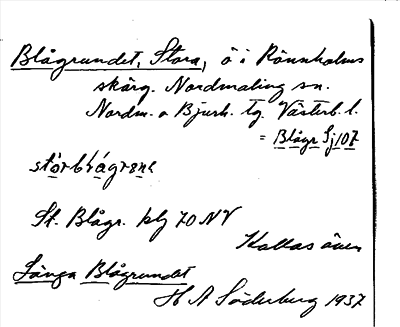 Blågrundet, Stora, ö i Rönnholms
skärg. Nordmaling sn.
Nordm. o Bjurh. tg. Västerb. l.
= Blågr Sj 107
St. Blågr. blj 70 NV
Kallas även
Långa Blågrundet
H A Söderberg 1937